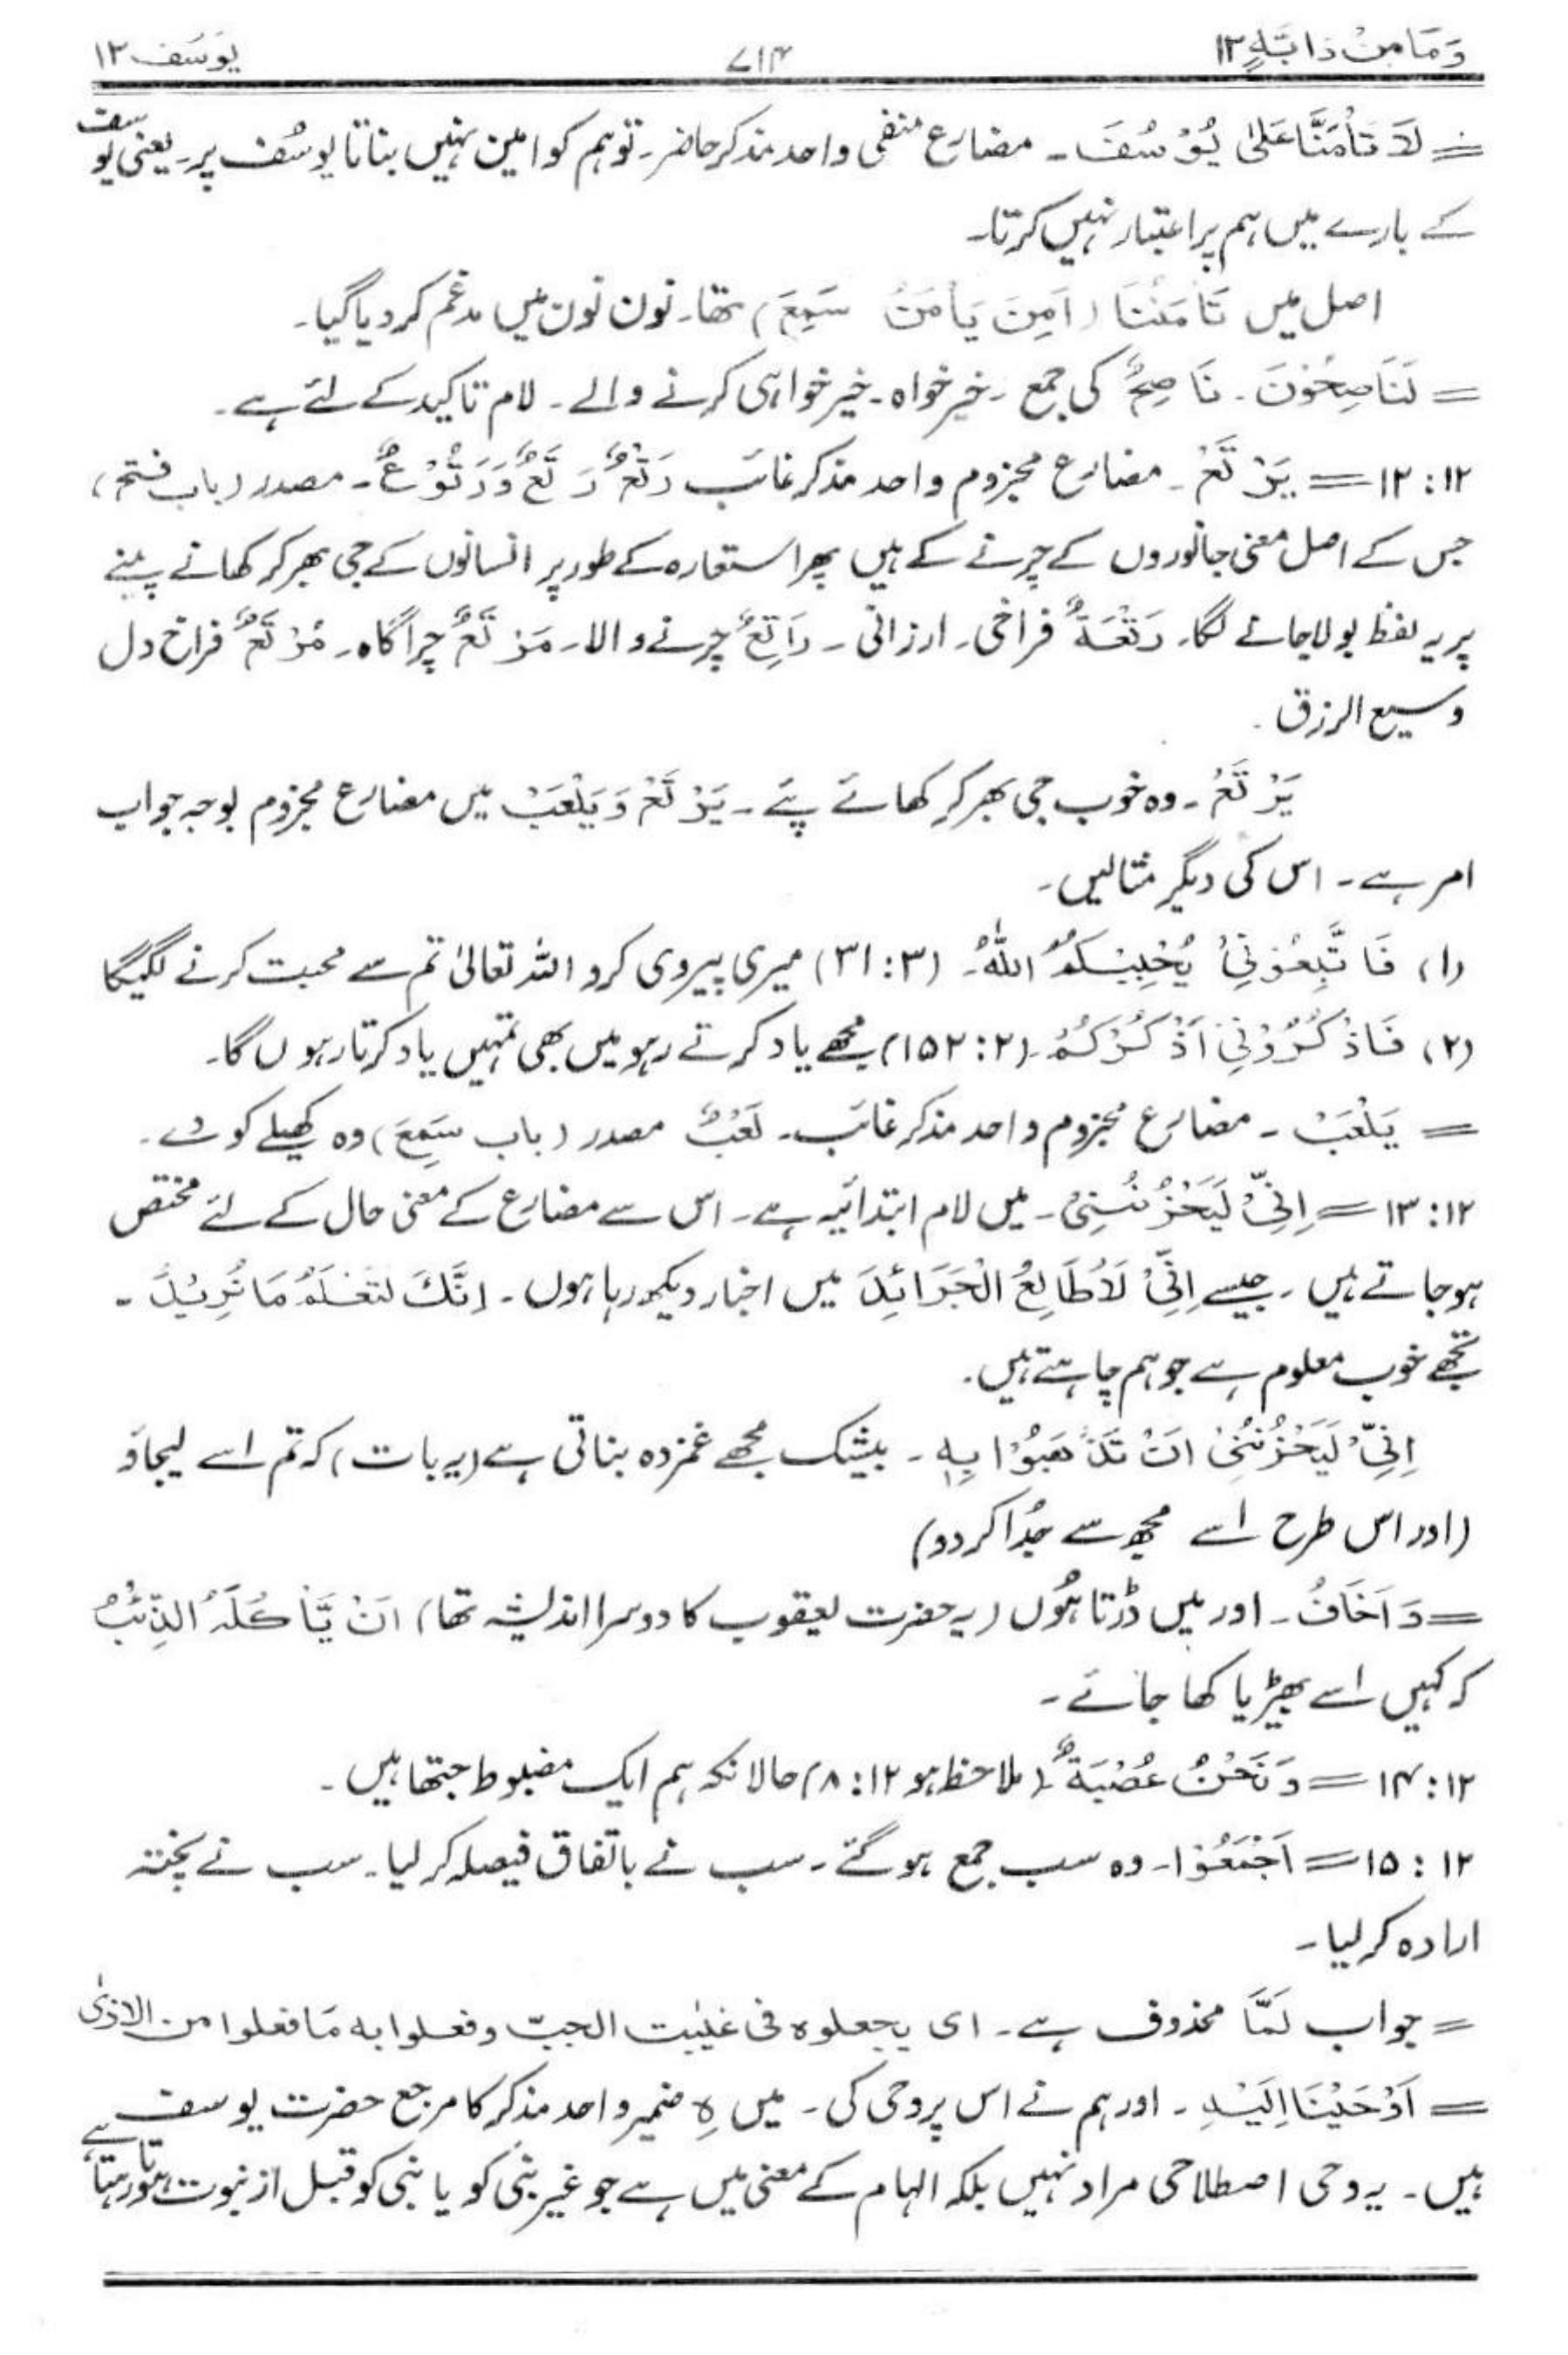 وَمَا مِنْ دَابَّةٍ ۱۲ ۷۱۴ یوسُف ۱۲
= لَا تَأْمَنَّا عَلیٰ یُوْسُفَ۔ مضارع منفی واحد مذکر حاضر۔ تو ہم کو امین نہیں بناتا یوسُف پر۔ یعنی یوسف
کے بارے میں ہم پر اعتبار نہیں کرتا۔
اصل میں تَأْمَنُنَا (اَمِنَ یَأْمَنُ سَمِعَ) تھا۔ نون نون میں مدغم کر دیا گیا۔
= لَنَاصِحُوْنَ۔ نَاصِحٌ کی جمع۔ خیر خواہ۔ خیر خواہی کرنے والے۔ لام تاکید کے لئے ہے۔
۱۲:۱۲ = یَرْتَعْ۔ مضارع مجزوم واحد مذکر غائب رَتْعٌ رَتَعٌ وَرَتُوْعٌ۔ مصدر (باب فتح)
جس کے اصل معنی جانوروں کے چرنے کے ہیں پھر استعارہ کے طور پر انسانوں کے جی بھر کر کھانے پینے
پر یہ لفظ بولا جانے لگا۔ رَتْعَةٌ فراخی۔ ارزانی۔ رَاتِعٌ چرنے والا۔ مَرْتَعٌ چراگاہ۔ مُرْتَعٌ فراخ دل
وسیع الرزق۔
یَرْتَعْ۔ وہ خوب جی بھر کر کھائے پئے۔ یَرْتَعْ وَیَلْعَبْ میں مضارع مجزوم بوجہ جواب
امر ہے۔ اس کی دیگر مثالیں۔
(۱) فَاتَّبِعُوْنِیْ یُحْبِبْکُمُ اللّٰہُ۔ (۳:۳۱) میری پیروی کرو اللہ تعالیٰ تم سے محبت کرنے لگیگا
(۲) فَاذْکُرُوْنِیْ اَذْکُرْکُمْ۔ (۲:۱۵۲) مجھے یاد کرتے رہو میں بھی تمہیں یاد کرتا رہوں گا۔
= یَلْعَبْ۔ مضارع مجزوم واحد مذکر غائب۔ لَعْبٌ مصدر (باب سَمِعَ) وہ کھیلے کودے۔
۱۲:۱۳ = اِنِّیْ لَیَحْزُنُنِیْ۔ میں لام ابتدائیہ ہے۔ اس سے مضارع کے معنی حال کے لئے مختص
ہو جاتے ہیں۔ جیسے اِنِّیْ لَاُطَالِعُ الْجَرَائِدَ میں اخبار دیکھ رہا ہوں۔ اِنَّكَ لَتَعْلَمُ مَا نُرِیْدُ۔
تجھے خوب معلوم ہے جو ہم چاہتے ہیں۔
اِنِّیْ لَیَحْزُنُنِیْ اَنْ تَذْهَبُوْا بِهٖ۔ بیشک مجھے غمزدہ بناتی ہے (یہ بات) کہ تم اسے لیجاؤ
(اور اس طرح اسے مجھ سے جُدا کر دو)
= وَاَخَافُ۔ اور میں ڈرتا ہُوں (یہ حضرت یعقوب کا دوسرا اندیشہ تھا) اَنْ یَّأْکُلَهُ الذِّئْبُ
کہ کہیں اسے بھیڑیا کھا جائے۔
۱۲:۱۴ = وَنَحْنُ عُصْبَةٌ۔ (ملاحظہ ہو ۱۲:۸) حالانکہ ہم ایک مضبوط جتھا ہیں۔
۱۲:۱۵ = اَجْمَعُوْا۔ وہ سب جمع ہو گئے۔ سب نے باتفاق فیصلہ کر لیا۔ سب نے پختہ
ارادہ کر لیا۔
= جواب لَمَّا محذوف ہے۔ ای یجعلوہ فی غیٰبت الجبّ وفعلوا به مَا فعلوا من الاذیٰ
= اَوْحَیْنَا اِلَیْهِ۔ اور ہم نے اس پر وحی کی۔ میں ہِ ضمیر واحد مذکر کا مرجع حضرت یوسف
ہیں۔ یہ وحی اصطلاحی مراد نہیں بلکہ الہام کے معنی میں ہے جو غیر نبی کو یا نبی کو قبل از نبوت ہوتا رہتا ہے